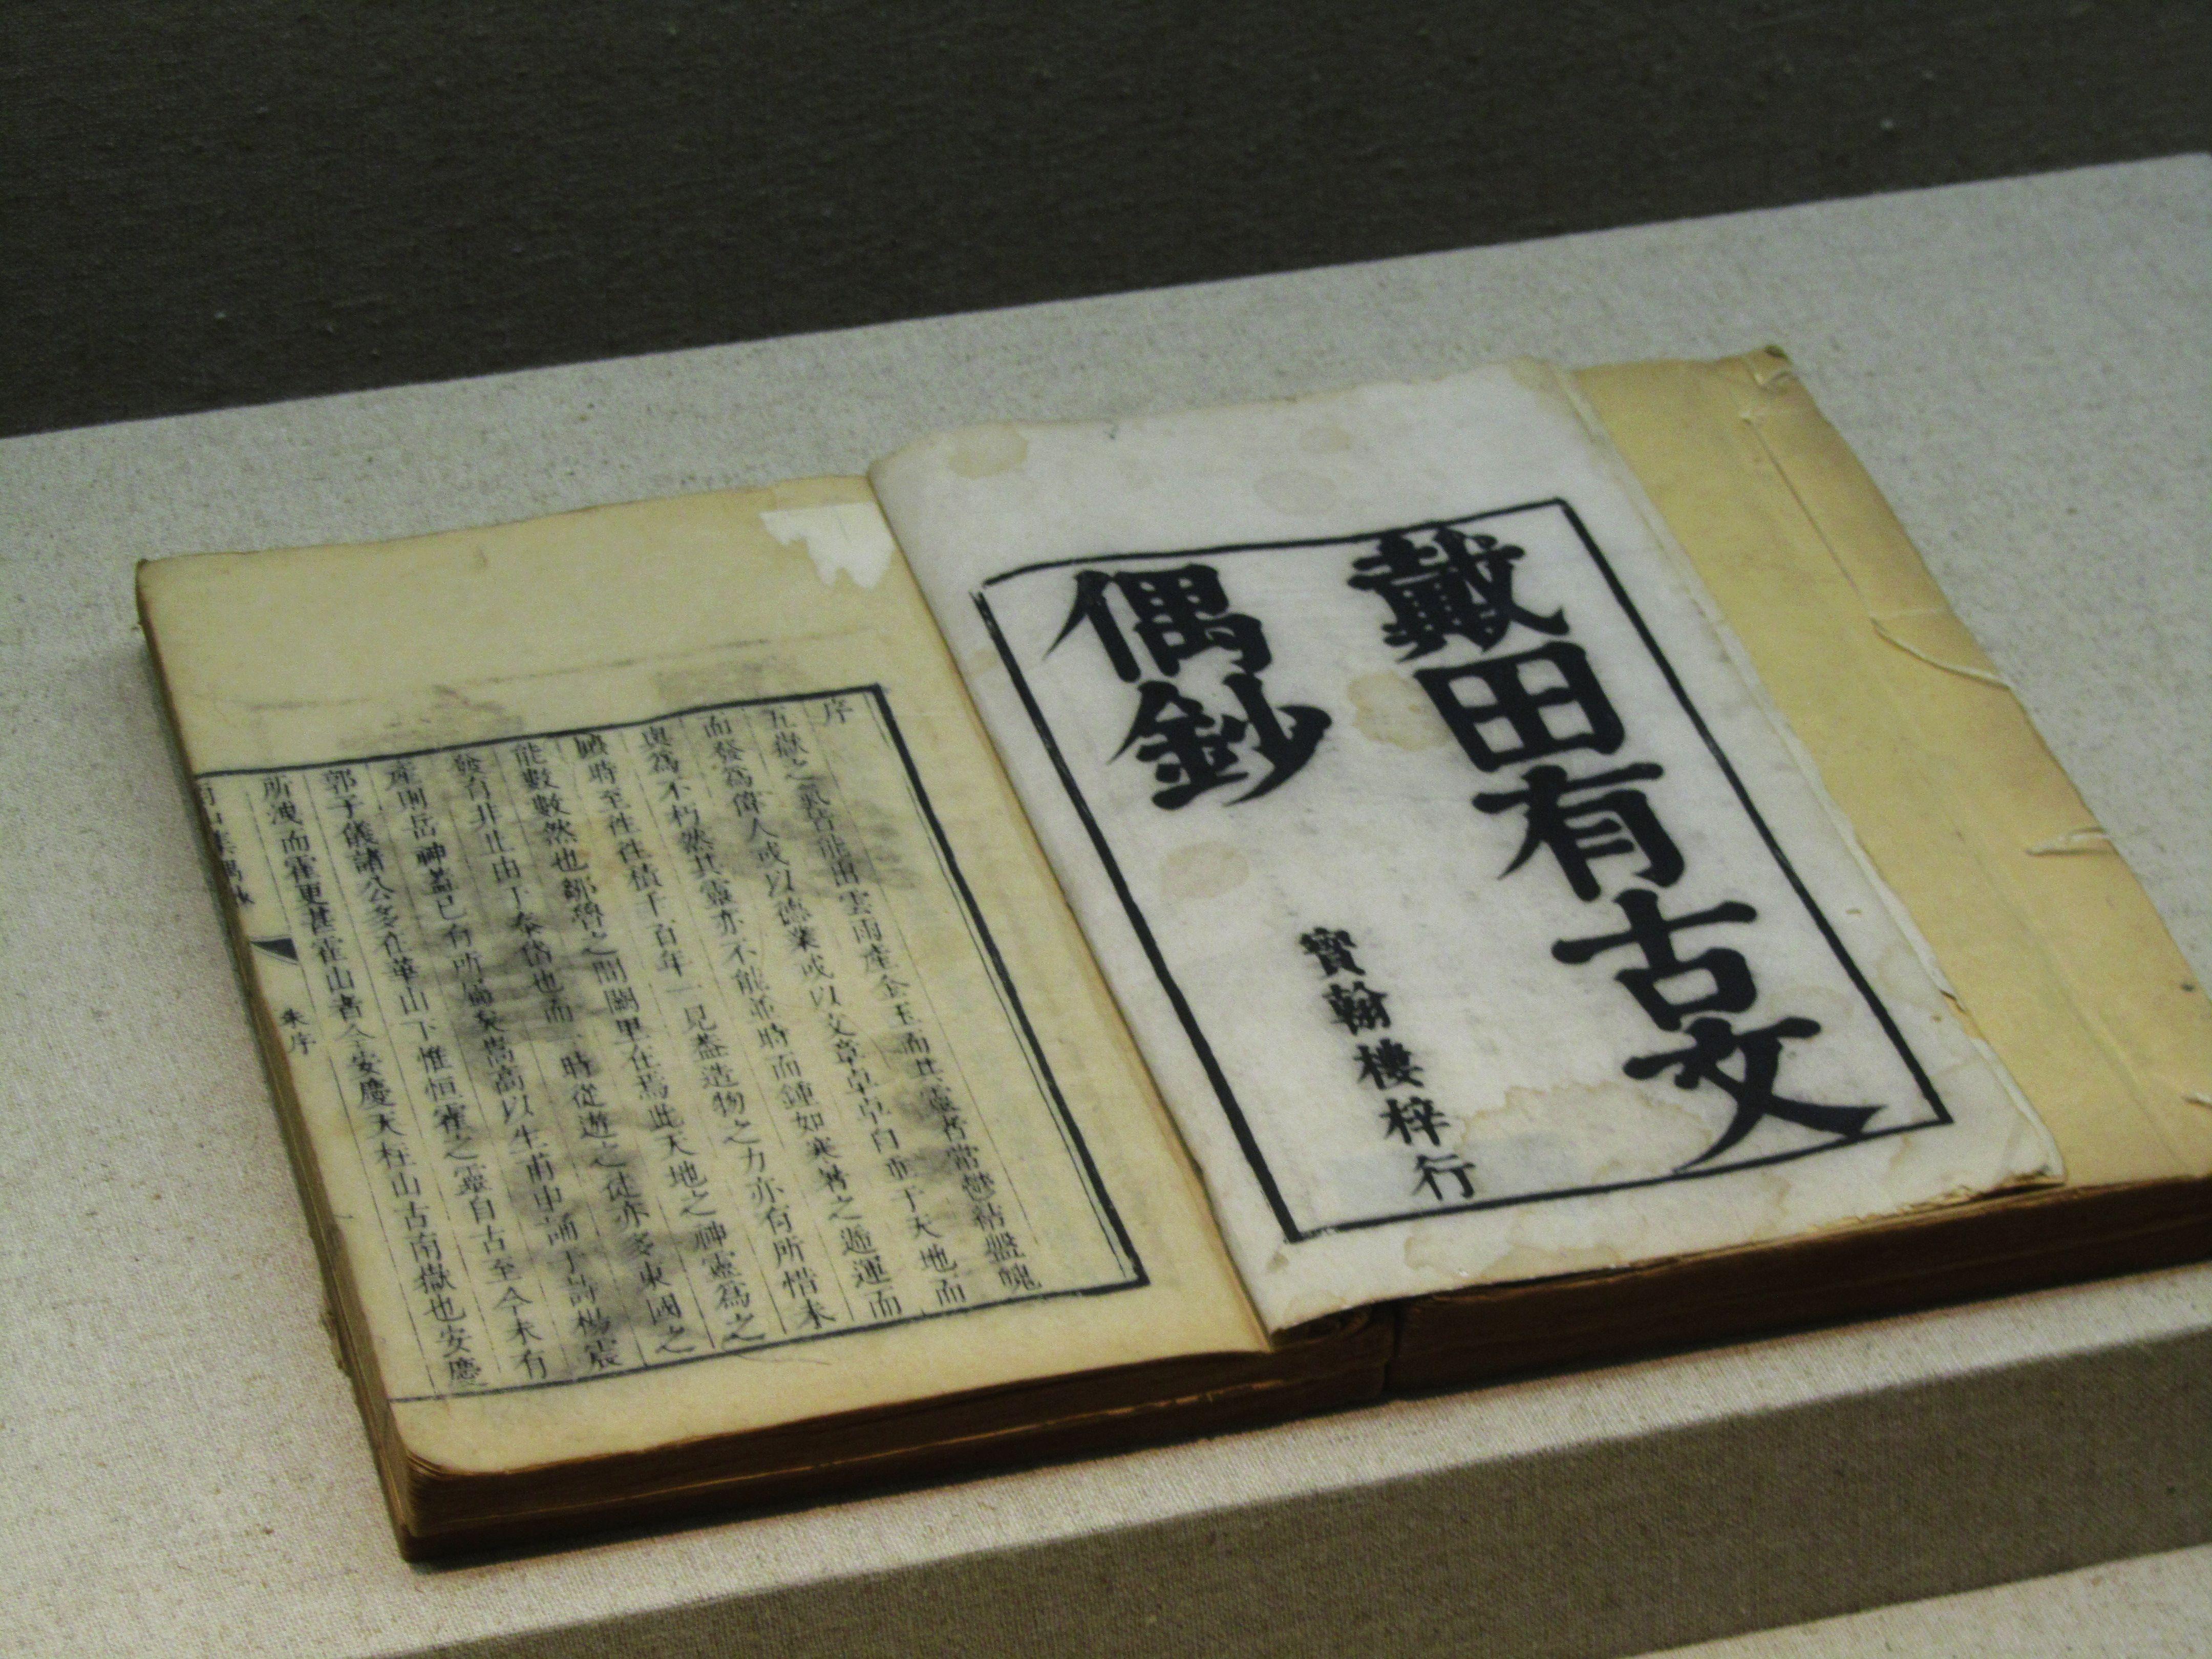 戴田有古文
偶鈔
寶翰樓梓行
序
五嶽之氣皆能出雲雨產金玉而其靈者常蟠結盤魄
而發爲偉人或以德業或以文章卓卓自垂于天地而
與爲不朽然其靈亦不能並時而鍾如寒暑之遞運而
時至往往積千百年一見蓋造物之力亦有所惜未
能數數然也鄒魯之間闕里在焉此天地之神靈爲之
發有非止由于泰岱也而一時從遊之徒亦多東國之
產則岳神蓋已有所屬矣嵩高以生甫申誦于詩楊震
郭子儀諸公多在華山下惟恒霍之靈自古至今未有
所洩而霍更甚霍山者今安慶天柱山古南嶽也安慶
南山集偶鈔
朱序